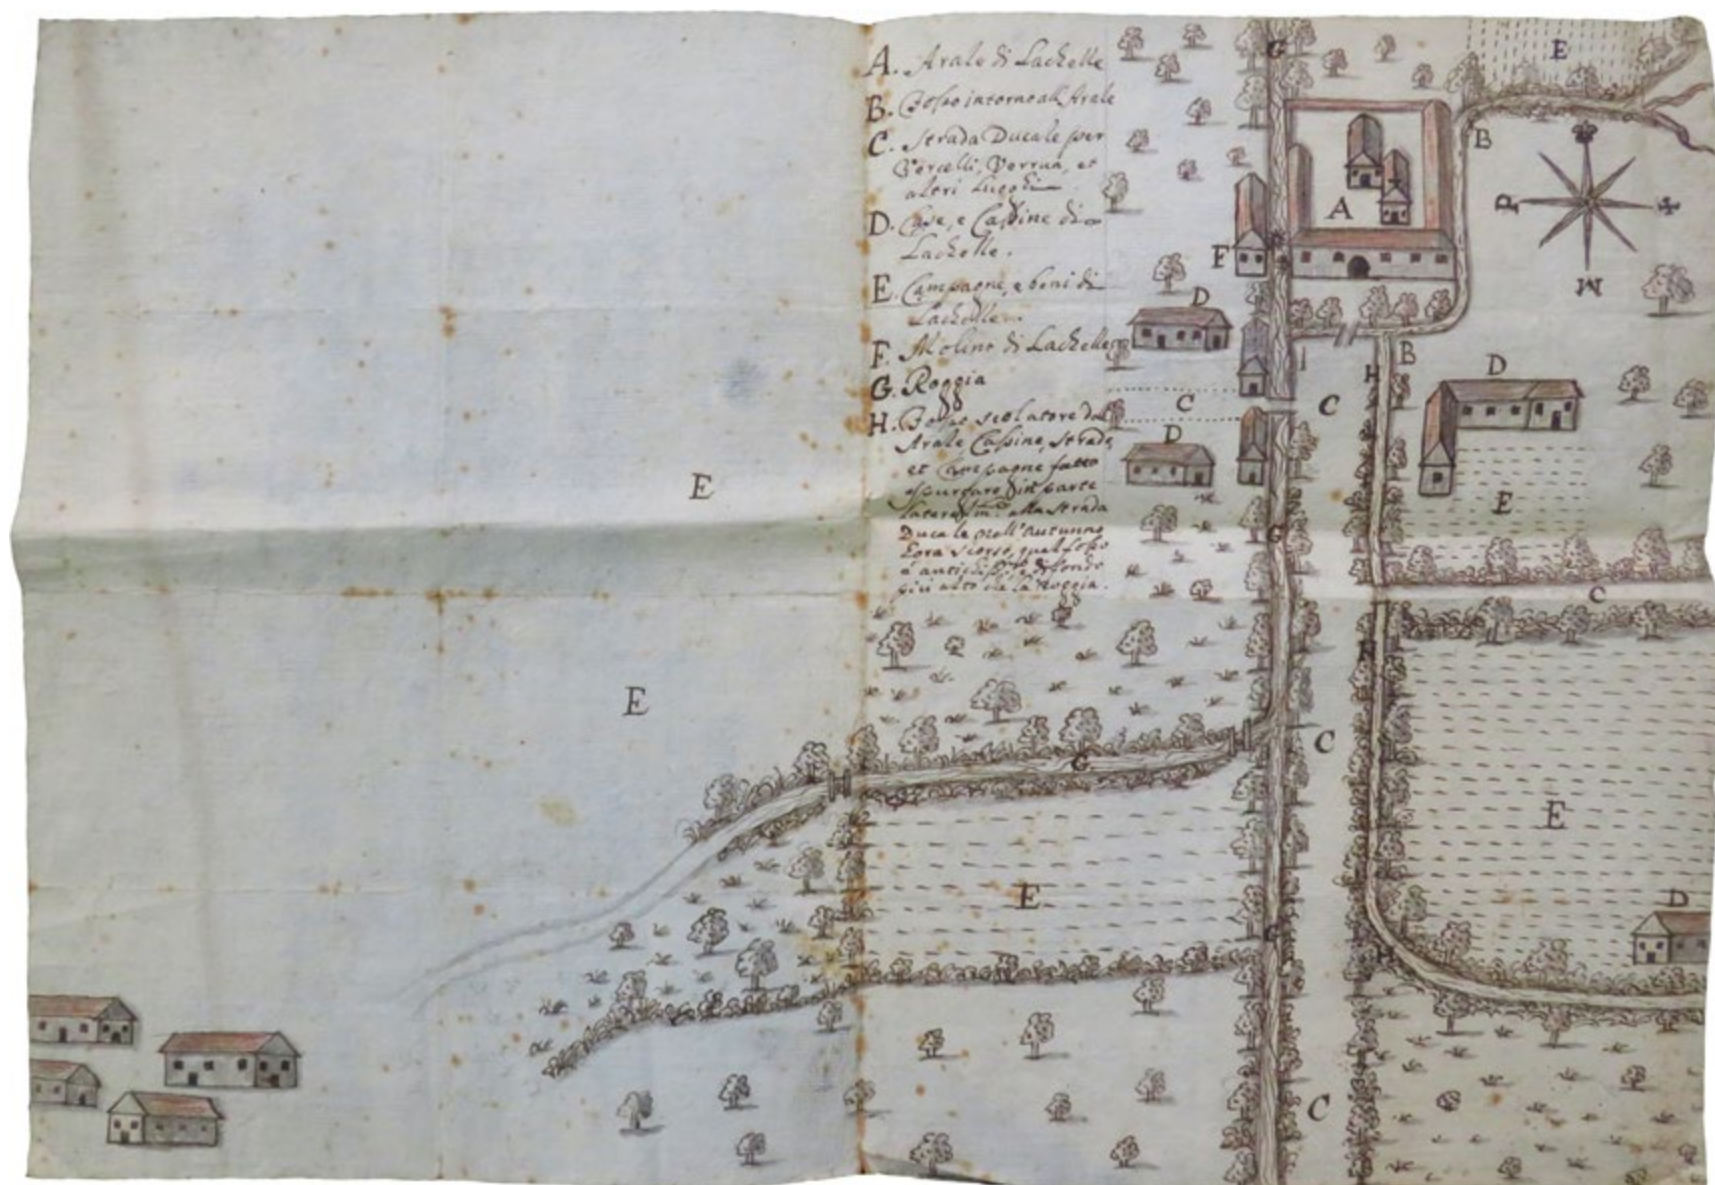 A. Arale di Lachelle
B. Fosso intorno all Arale
C. Strada Ducale per
Vercelli, Verrua, et
altri Luoghi
D. Case, e Cassine di
Lachelle.
E. Campagne, e beni di
Lachelle.
F. Molino di Lachelle
G. Roggia
H. Fosso scolatore dal
Arale, Cassine, strade
et Campagne fatto
espurgare in parte
alla strada
Ducale nell'Autunno
hora scorso, qual fosso
di fondo
più alto che la Roggia.
G
E
B
A
P
M
F
D
B
D
H
C
C
D
E
E
G
C
H
E
C
G
E
E
D
G
H
C